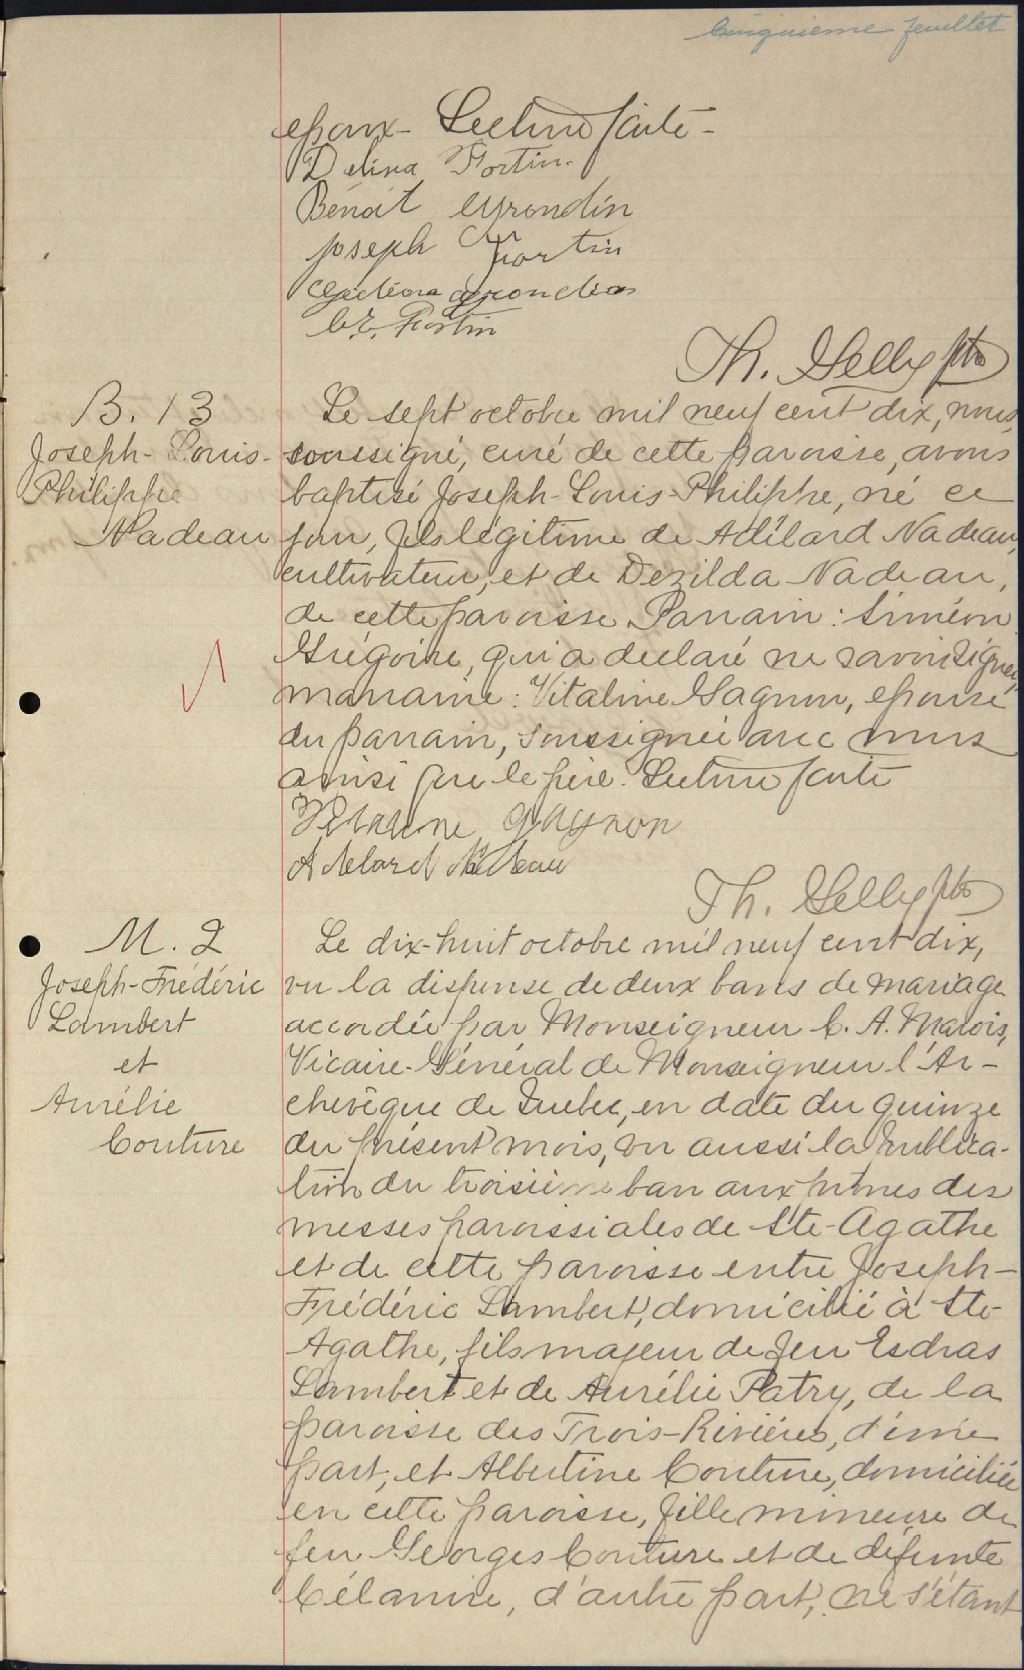 Cinquieme feuillet
epoux - Lecture faite -
Délina Fortin.
Benoit Cyrondin
Joseph Fortin
Th. Gelly ptre
B. 13
Joseph-Louis-
Philippe
Nadeau
Le sept octobre mil neuf cent dix, nous,
soussigné, curé de cette paroisse, avons
baptisé Joseph-Louis-Philippe, né ce
jour, fils légitime de Adélard Nadeau,
cultivateur, et de Dezilda Nadeau,
de cette paroisse. Parrain : Siméon
Grégoire, qui a declaré ne savoir signer,
marraine : Vitaline Gagnon, epouse
du parrain, soussignée avec nous
ainsi que le père. Lecture faite
Vitaline Gagnon
Adelard Nadeau
Th. Gelly ptre
M. 2
Joseph-Frédéric
Lambert
et
Aurélie
Couture
Le dix-huit octobre mil neuf cent dix,
vu la dispense de deux bans de mariage
accordée par Monseigneur C. A. Marois,
Vicaire-Général de Monseigneur l'Ar-
chevêque de Quebec, en date du quinze
du présent mois, vu aussi la publica-
tion du troisième ban aux prônes des
messes paroissiales de Ste-Agathe
et de cette paroisse entre Joseph-
Frédéric Lambert, domicilié à Ste-
Agathe, fils majeur de feu Esdras
Lambert et de Aurélie Patry, de la
paroisse des Trois-Rivières, d'une
part, et Albertine Couture, domiciliée
en cette paroisse, fille mineure de
feu Georges Couture et de défunte
Célanire, d'autre part, ne s'étant